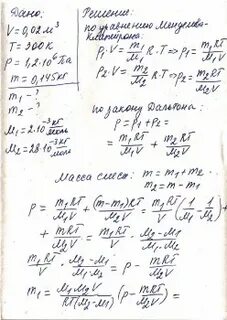 Дано:
V = 0,02 м³
T = 300 К
P = 1,2·10⁶ Па
m = 0,145 кг
m₁ - ?
m₂ - ?
M₁ = 2·10⁻³ кг/моль
M₂ = 28·10⁻³ кг/моль
Решение:
по уравнению Менделеева-
Клапейрона:
P₁·V = m₁/M₁ R·T ⇒ P₁ = m₁RT/M₁V
P₂·V = m₂/M₂ R·T ⇒ P₂ = m₂RT/M₂V
по закону Дальтона:
P = P₁ + P₂ =
= m₁RT/M₁V + m₂RT/M₂V
Масса смеси: m = m₁ + m₂.
m₂ = m - m₁
P = m₁RT/M₁V + (m-m₁)RT/M₂V = m₁RT/V (1/M₁ - 1/M₂)
+ mRT/M₂V = m₁RT/V · M₂-M₁/M₁·M₂
m₁RT/V · M₂-M₁/M₁·M₂ = P - mRT/M₂V
m₁ = M₁M₂V/RT(M₂-M₁) (P - mRT/M₂V) =